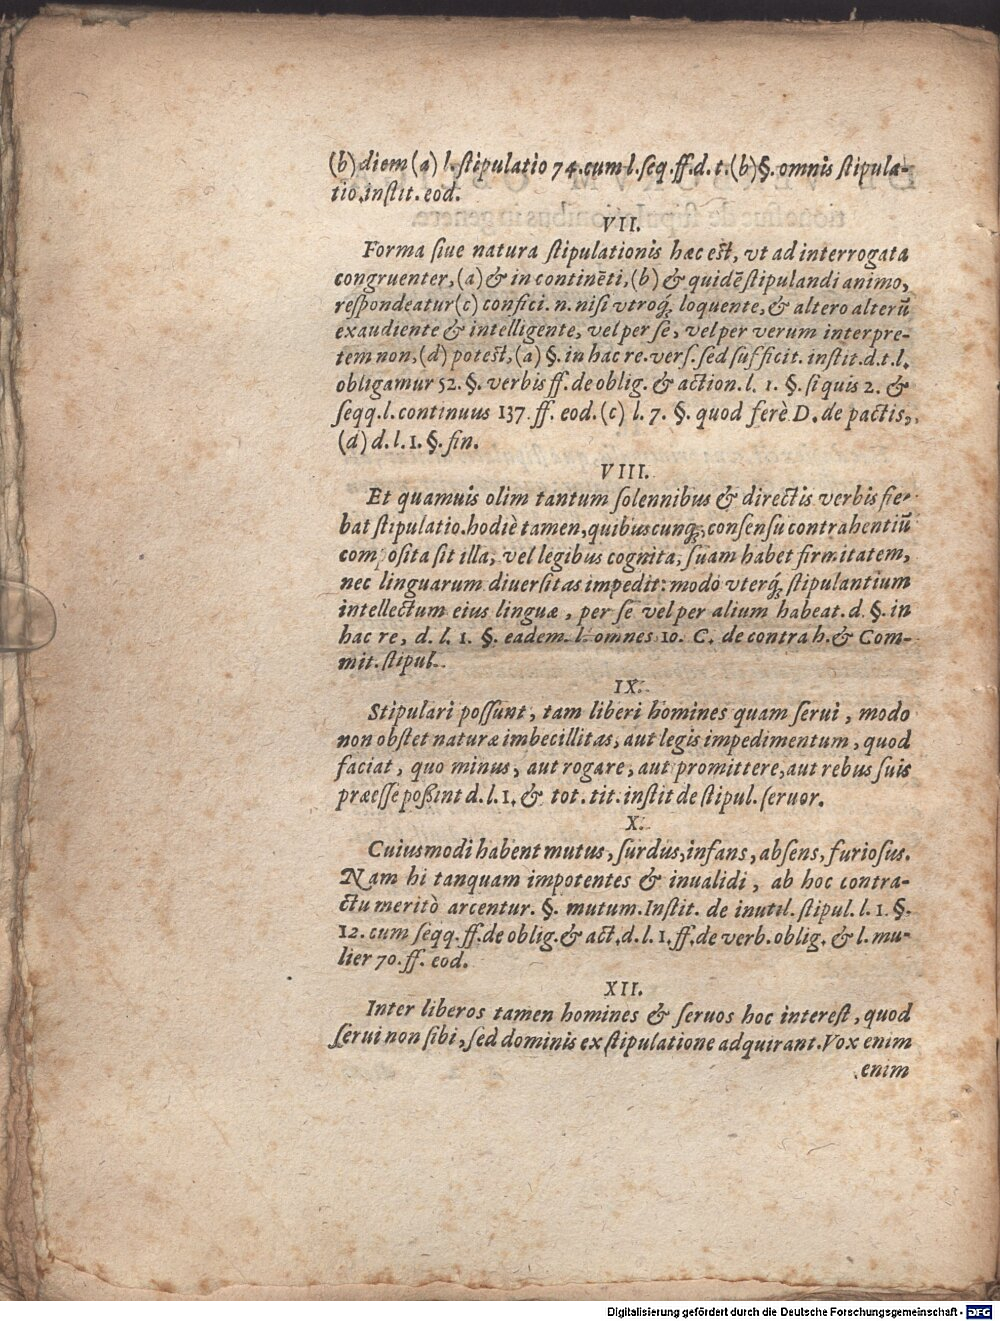 (b) diem (a) l. stipulatio 74. cum l. seq. ff. d. t. (b) §. omnis stipula-
tio, instit. eod.
VII.
Forma siue natura stipulationis hæc est, vt ad interrogata
congruenter, (a) & in continẽti, (b) & quidẽ stipulandi animo,
respondeatur (c) confici. n. nisi vtroq́; loquente, & altero alterũ
exaudiente & intelligente, vel per se, vel per verum interpre-
tem non, (d) potest, (a) §. in hac re. vers. sed sufficit. instit. d. t. l.
obligamur 52. §. verbis ff. de oblig. & action. l. 1. §. si quis 2. &
seqq. l. continuus 137. ff. eod. (c) l. 7. §. quod ferè D. de pactis,
(d) d. l. 1. §. fin.
VIII.
Et quamuis olim tantum solennibus & directis verbis fie-
bat stipulatio. hodiè tamen, quibuscunq́;, consensu contrahentiũ
composita sit illa, vel legibus cognita, suam habet firmitatem,
nec linguarum diuersitas impedit: modò vterq́; stipulantium
intellectum eius linguæ, per se vel per alium habeat. d. §. in
hac re, d. l. 1. §. eadem. l. omnes 10. C. de contrah. & Com-
mit. stipul.
IX.
Stipulari possunt, tam liberi homines quam serui, modo
non obstet naturæ imbecillitas, aut legis impedimentum, quod
faciat, quo minus, aut rogare, aut promittere, aut rebus suis
præesse poßint d. l. 1. & tot. tit. instit de stipul. seruor.
X.
Cuiusmodi habent mutus, surdus, infans, absens, furiosus.
Nam hi tanquam impotentes & inualidi, ab hoc contra-
ctu meritò arcentur. §. mutum. Instit. de inutil. stipul. l. 1. §.
12. cum seqq. ff. de oblig. & act. d. l. 1. ff. de verb. oblig. & l. mu-
lier 70. ff. eod.
XII.
Inter liberos tamen homines & seruos hoc interest, quod
serui non sibi, sed dominis ex stipulatione adquirant. Vox enim
enim
Digitalisierung gefördert durch die Deutsche Forschungsgemeinschaft - DFG